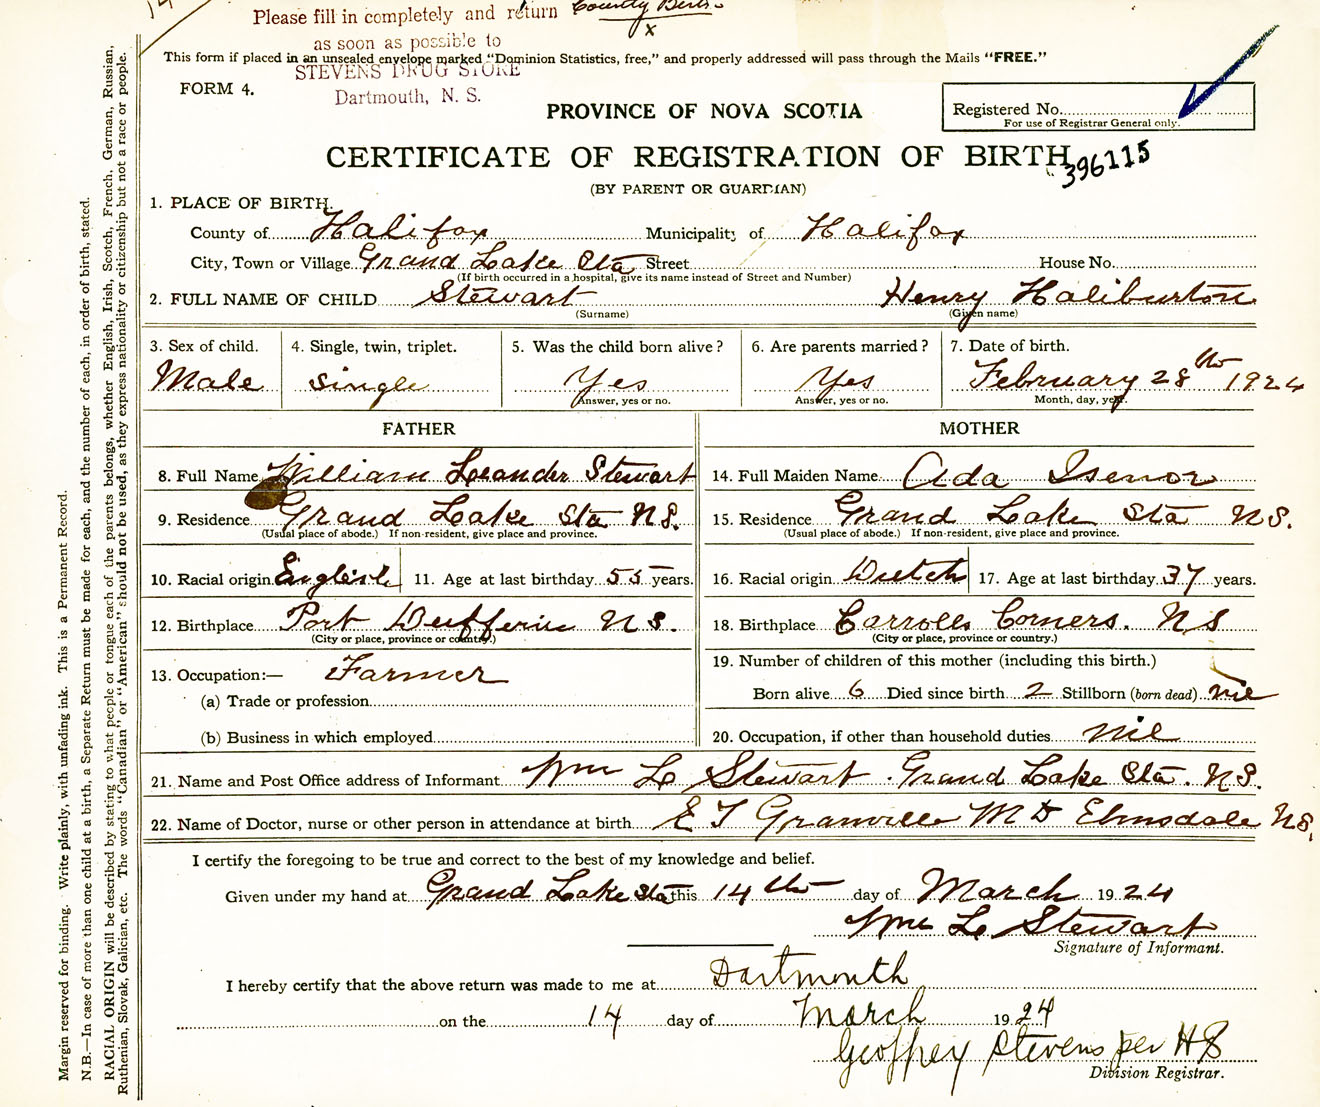 Please fill in completely and return County Births
x
as soon as possible to
This form if placed in an unsealed envelope marked "Dominion Statistics, free," and properly addressed will pass through the Mails "FREE."
STEVENS DRUG STORE
FORM 4.
Dartmouth, N. S.
PROVINCE OF NOVA SCOTIA
Registered No.
For use of Registrar General only.
CERTIFICATE OF REGISTRATION OF BIRTH
396115
(BY PARENT OR GUARDIAN)
1. PLACE OF BIRTH.
County of Halifax Municipality of Halifax
City, Town or Village Grand Lake Sta Street House No.
(If birth occurred in a hospital, give its name instead of Street and Number)
2. FULL NAME OF CHILD Stewart Henry Haliburton
(Surname) (Given name)
3. Sex of child. 4. Single, twin, triplet. 5. Was the child born alive? 6. Are parents married? 7. Date of birth.
Male Single Yes Yes February 28th 1924
Answer, yes or no. Answer, yes or no. Month, day, year.
FATHER MOTHER
8. Full Name William Leander Stewart 14. Full Maiden Name Ada Isenor
9. Residence Grand Lake Sta N.S. 15. Residence Grand Lake Sta N.S.
(Usual place of abode.) If non-resident, give place and province. (Usual place of abode.) If non-resident, give place and province.
10. Racial origin English 11. Age at last birthday 55 years. 16. Racial origin Dutch 17. Age at last birthday 37 years.
12. Birthplace Port Dufferin N.S. 18. Birthplace Carrolls Corners. N S
(City or place, province or country.) (City or place, province or country.)
13. Occupation:— Farmer 19. Number of children of this mother (including this birth.)
(a) Trade or profession Born alive 6 Died since birth 2 Stillborn (born dead) nil
(b) Business in which employed 20. Occupation, if other than household duties nil
21. Name and Post Office address of Informant Wm L Stewart. Grand Lake Sta. N.S.
22. Name of Doctor, nurse or other person in attendance at birth E T Granville M D Elmsdale N.S.
I certify the foregoing to be true and correct to the best of my knowledge and belief.
Given under my hand at Grand Lake Sta this 14th day of March 1924
Wm L Stewart
Signature of Informant.
I hereby certify that the above return was made to me at Dartmouth
on the 14 day of March 1924
Geoffrey Stevens per H S
Division Registrar.
Margin reserved for binding. Write plainly, with unfading ink. This is a Permanent Record.
N.B.—In case of more than one child at a birth, a Separate Return must be made for each, and the number of each, in order of birth, stated.
RACIAL ORIGIN will be described by stating to what people or tongue each of the parents belongs, whether English, Irish, Scotch, French, German, Russian,
Ruthenian, Slovak, Galician, etc. The words "Canadian" or "American" should not be used, as they express nationality or citizenship but not a race or people.